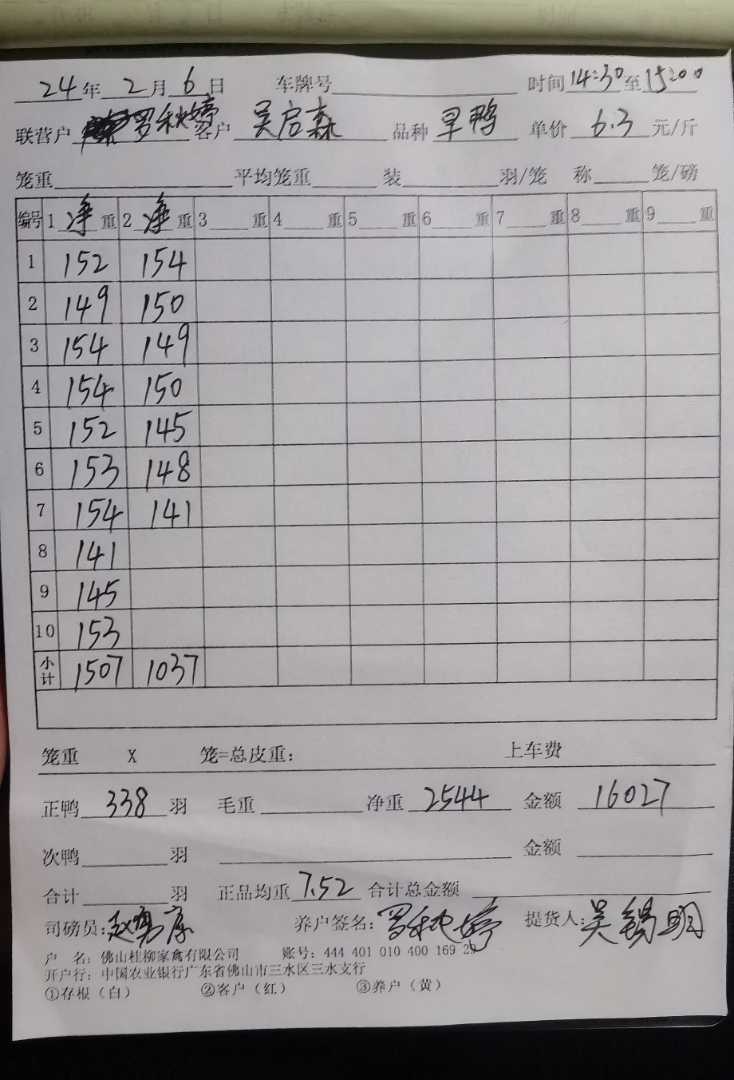 24年2月6日 车牌号 时间14:30至15:00
联营户 罗秋婷 客户 吴启森 品种 旱鸭 单价 6.3 元/斤
笼重 平均笼重 装 羽/笼 称 笼/磅
编号 1 净 重 2 净 重 3 重 4 重 5 重 6 重 7 重 8 重 9 重
1 152 154
2 149 150
3 154 149
4 154 150
5 152 145
6 153 148
7 154 141
8 141
9 145
10 153
小计 1507 1037
笼重 X 笼=总皮重: 上车费
正鸭 338 羽 毛重 净重 2544 金额 16027
次鸭 羽 金额
合计 羽 正品均重 7.52 合计总金额
司磅员: 养户签名: 罗秋婷 提货人: 吴锡明
户 名: 佛山桂柳家禽有限公司 账号: 444 401 010 400 169 29
开户行: 中国农业银行广东省佛山市三水区三水支行
①存根（白） ②客户（红） ③养户（黄）